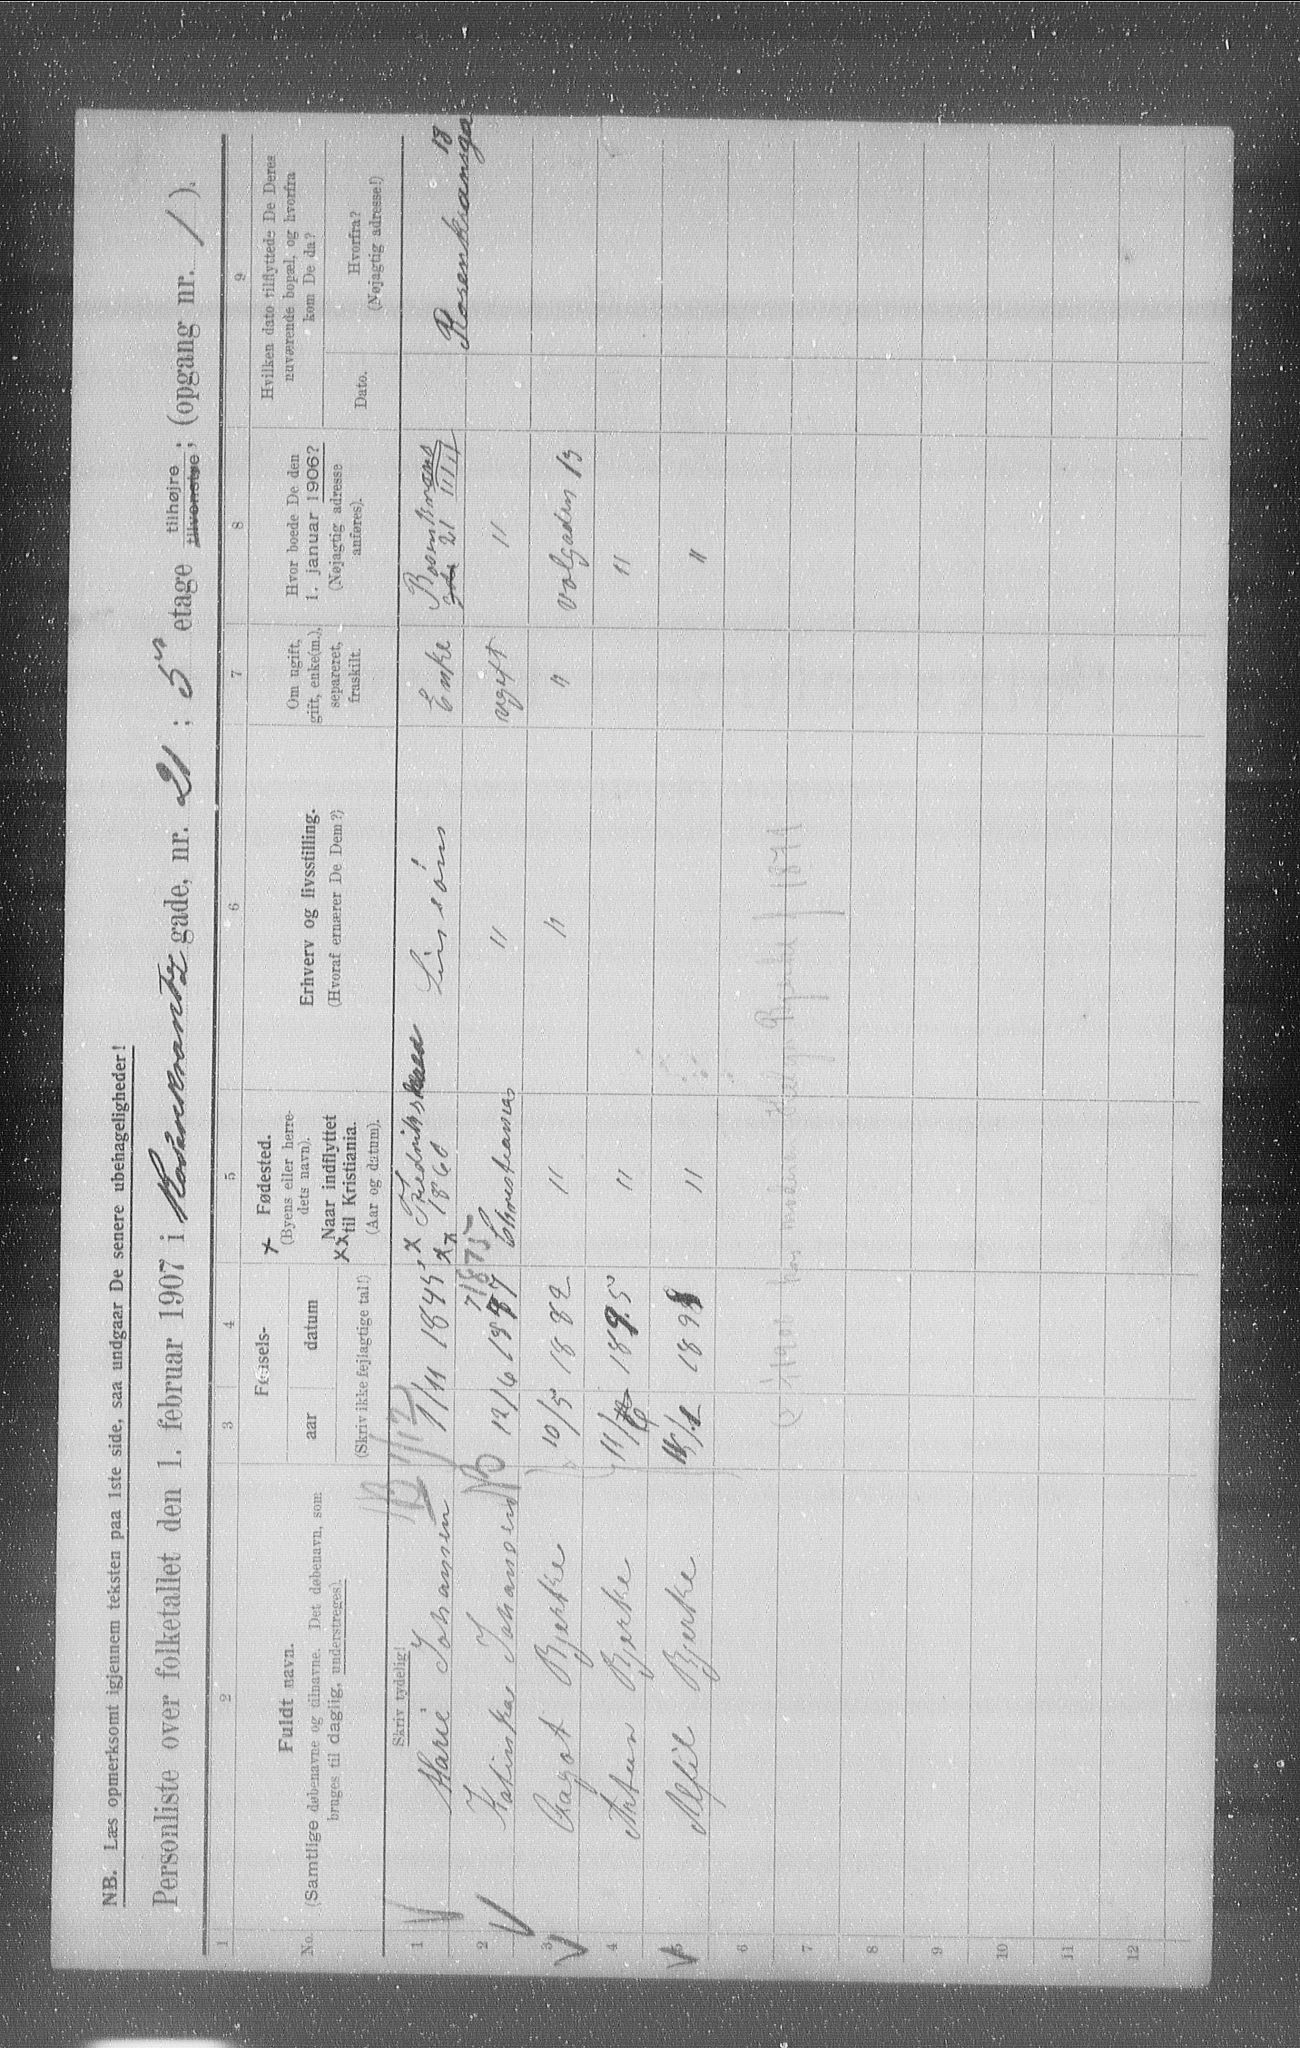 NB. Læs opmerksomt igjennem teksten paa 1ste side, saa undgaar De senere ubehageligheder!
Personliste over folketallet den 1. februar 1907 i Rosenkrantz gade, nr. 21 ; 5 etage tilhøjre tilvenstre ; (opgang nr. 1 ).
1 2 3 4 5 6 7 8 9
No.
Fuldt navn.
(Samtlige døbenavne og tilnavne. Det døbenavn, som
bruges til daglig, understreges).
Fødsels-
aar datum
(Skriv ikke fejlagtige tal!)
x Fødested.
(Byens eller herre-
dets navn).
Naar indflyttet
xx til Kristiania.
(Aar og datum).
Erhverv og livsstilling.
(Hvoraf ernærer De Dem?)
Om ugift,
gift, enke(m.),
separeret,
fraskilt.
Hvor boede De den
1. januar 1906?
(Nøjagtig adresse
anføres).
Hvilken dato tilflyttede De Deres
nuværende bopæl, og hvorfra
kom De da?
Dato.
Hvorfra?
(Nøjagtig adresse!)
Skriv tydelig!
1 Marie Johansen 1/11 1845 x Fredrikshald xx 1860 Enke Rosenkrans 21 Rosenkransga 18
2 Johansen 12/6 18 7 1875 " ugift "
3 Ragot Bjerke 10/5 1882 " " " Volgaden 13
4 Anton Bjerke 11/ 1895 " "
5 Alfil Bjerke 189 " "
6
7
8
9
10
11
12